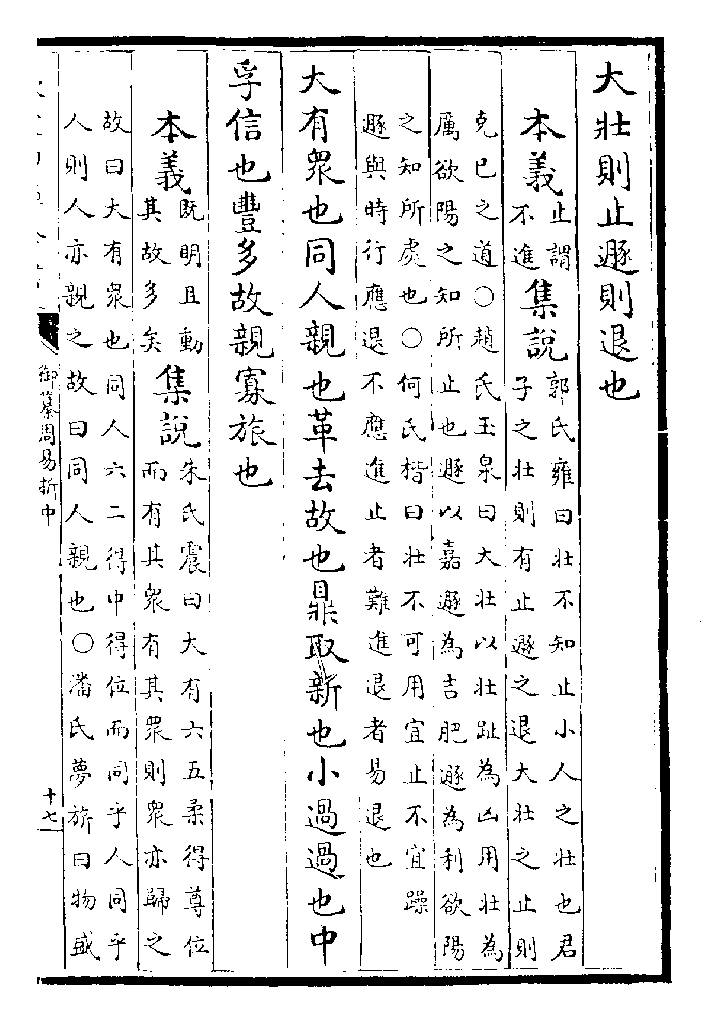 大壯則止遯則退也
本義
止謂
不進
集說
郭氏雍曰壯不知止小人之壯也君
子之壯則有止遯之退大壯之止則
克已之道○趙氏玉泉曰大壯以壯趾為凶用壯為
厲欲陽之知所止也遯以嘉遯為吉肥遯為利欲陽
之知所處也○何氏楷曰壯不可用宜止不宜躁
遯與時行應退不應進止者難進退者易退也
大有衆也同人親也革去故也鼎取新也小過過也中
孚信也豐多故親寡旅也
本義
既明且動
其故多矣
集說
朱氏震曰大有六五柔得尊位
而有其衆有其衆則衆亦歸之
故曰大有衆也同人六二得中得位而同乎人同乎
人則人亦親之故曰同人親也○潘氏夢旂曰物盛
御纂周易折中
十七